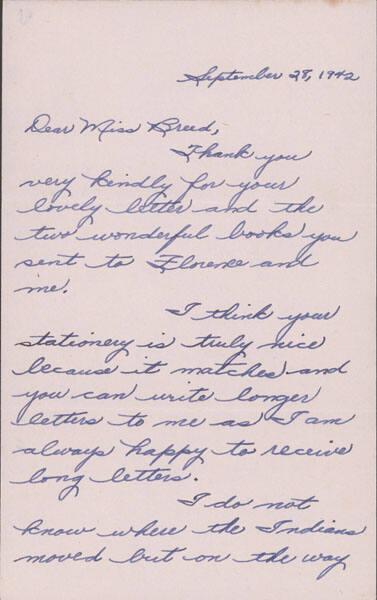 September 28, 1942
Dear Miss Breed,
Thank you
very kindly for your
lovely letter and the
two wonderful books you
sent to Florence and
me.
I think your
stationery is truly nice
because it matches and
you can write longer
letters to me as I am
always happy to receive
long letters.
I do not
know where the Indians
moved but on the way